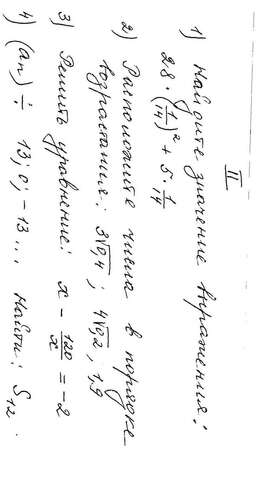 II
1) Найдите значение выражения:
28 · (1/14)² + 5 · 1/14
2) Расположите числа в порядке
возрастания: 3√0,4 ; 4√0,2 , 1,9
3) Решить уравнение: x - 120/x = -2
4) (an) ÷ 13; 0; -13... Найти: S₁₂.